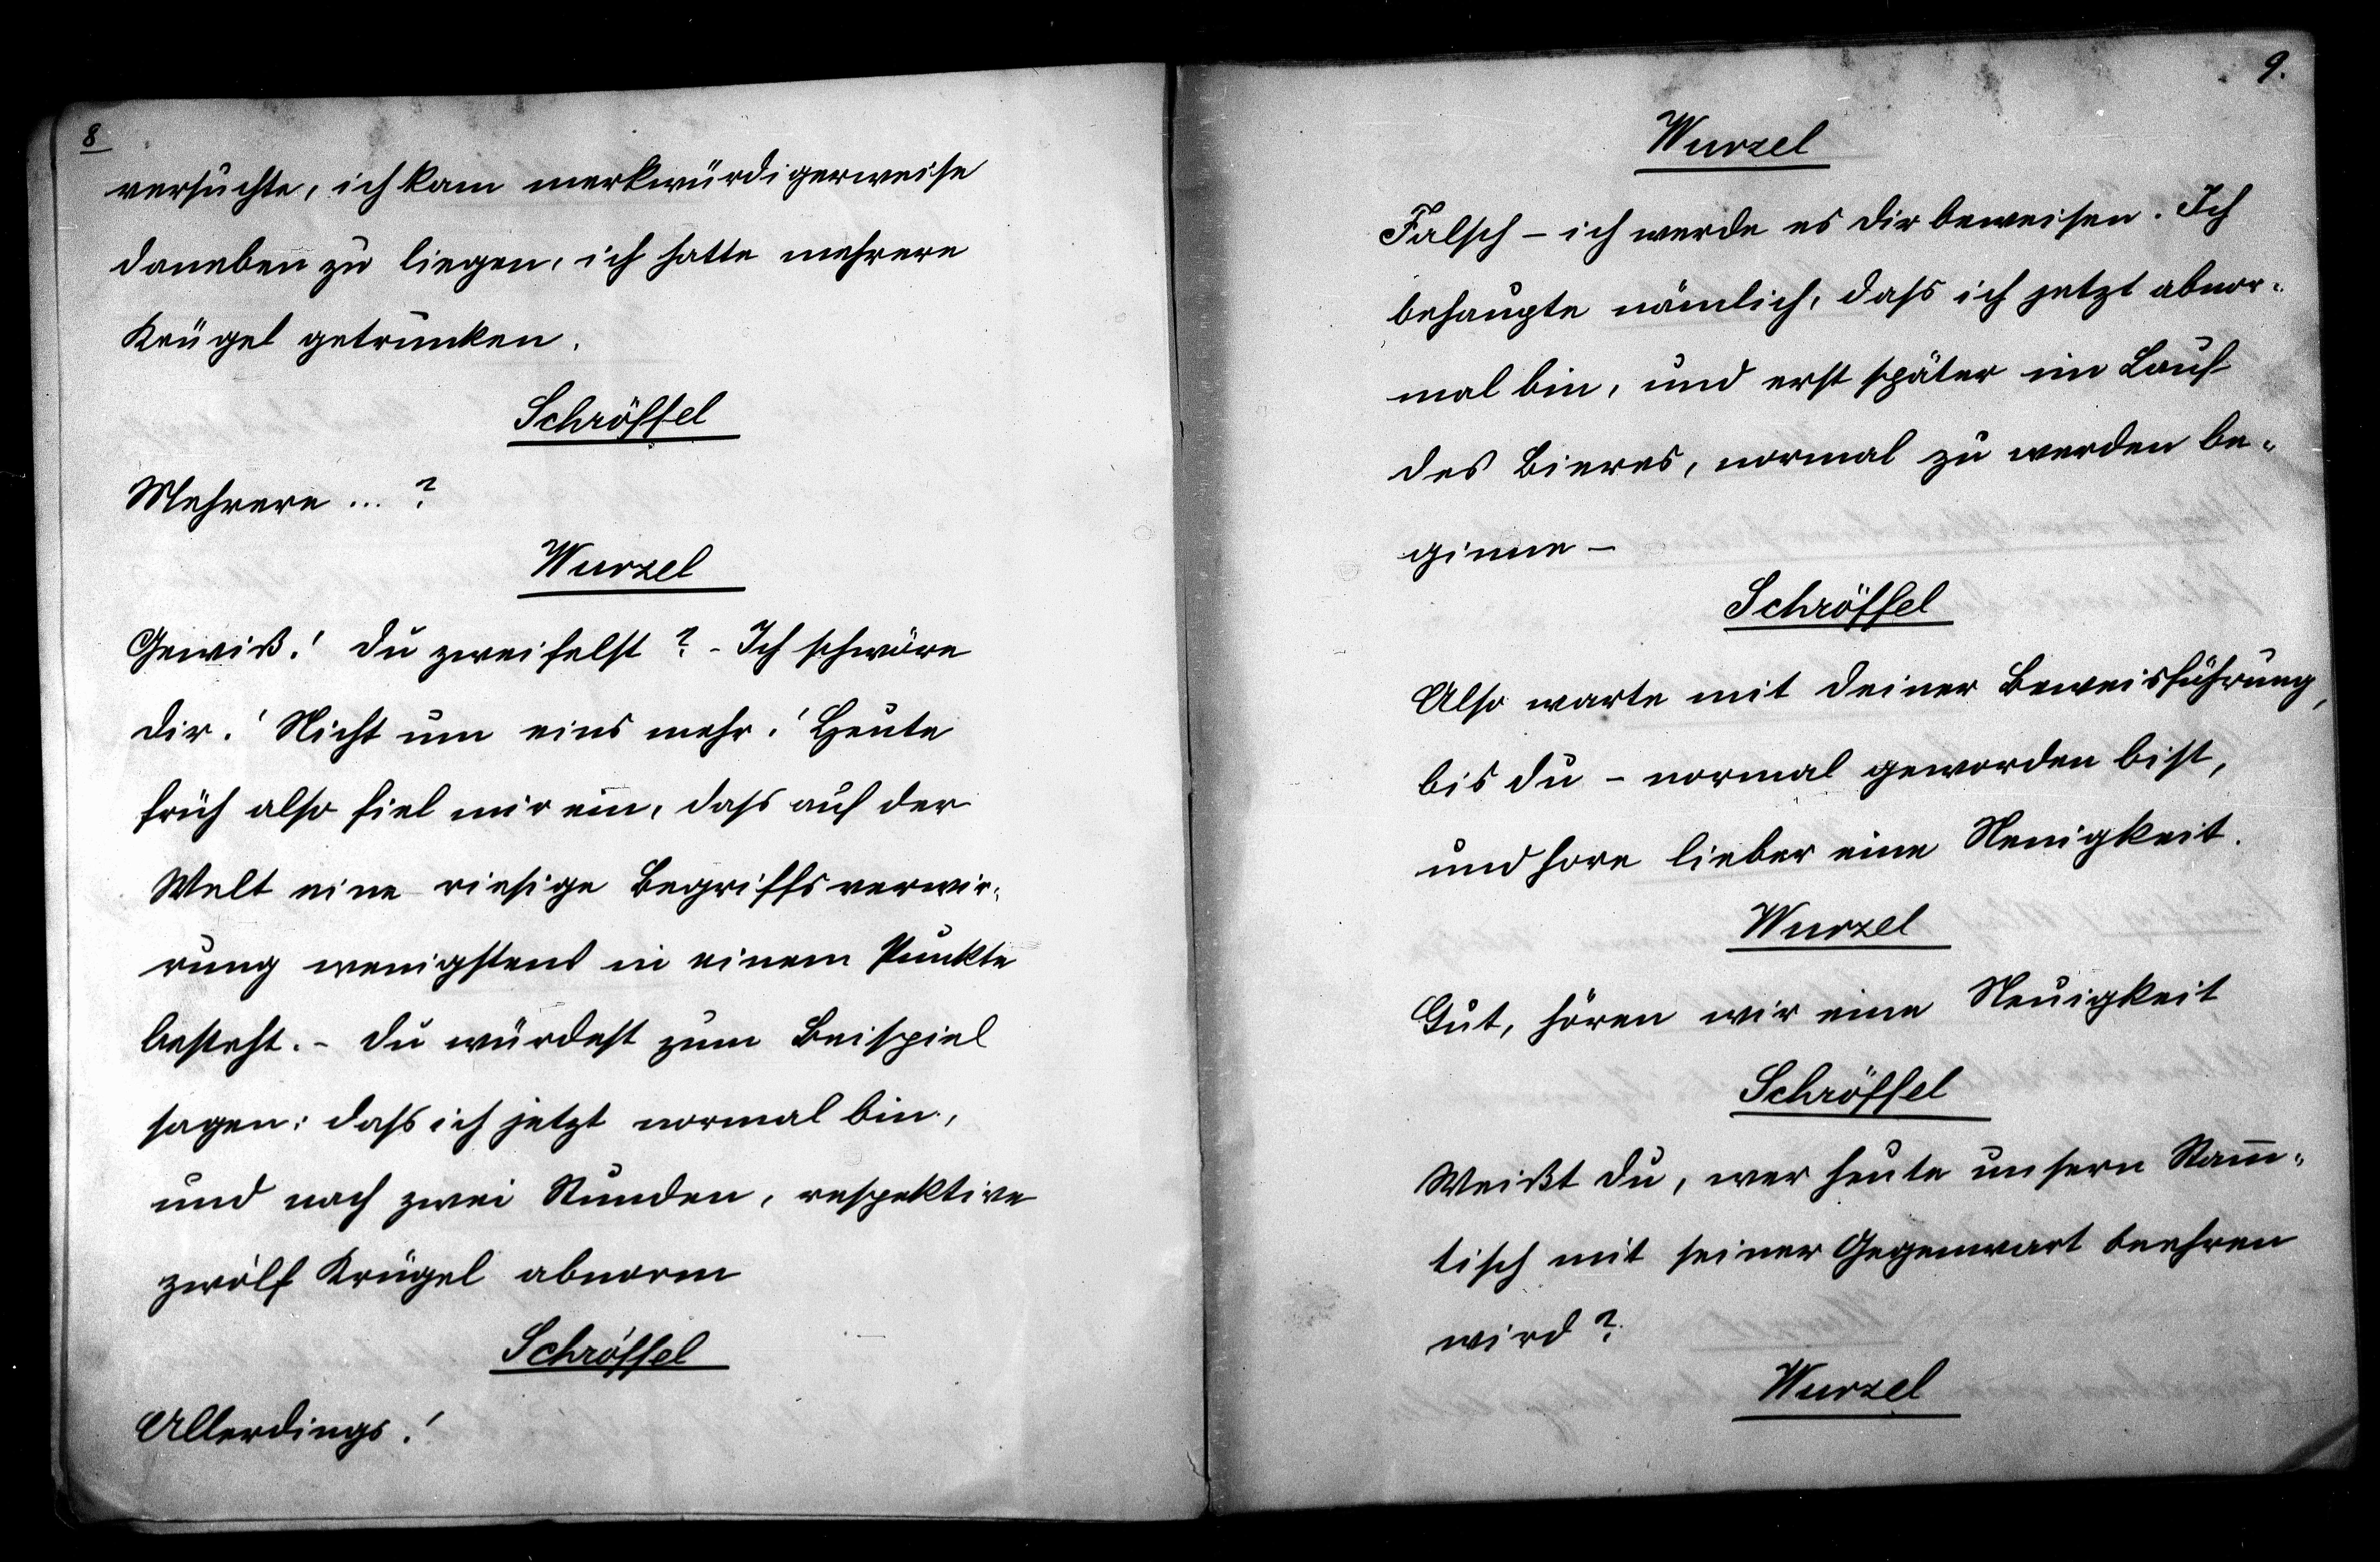 8
versuchte, ich kam merkwürdigerweise
daneben zu liegen, ich hatte mehrere
Krügel getrunken.
Schröffel
Mehrere ... ?
Wurzel
Gewiß! Du zweifelst? - Ich schwöre
dir! Nicht um eins mehr! Heute
früh also fiel mir ein, dass auf der
Welt eine riesige Begriffsverwir-
rung wenigstens in einem Punkte
besteht. - Du würdest zum Beispiel
sagen: dass ich jetzt normal bin,
und nach zwei Stunden, respektive
zwölf Krügel abnorm
Schröffel
Allerdings!
9.
Wurzel
Falsch - ich werde es dir beweisen. Ich
behaupte nämlich, dass ich jetzt abnor-
mal bin, und erst später im Lauf
des Bieres, normal zu werden be-
ginne -
Schröffel
Also warte mit deiner Beweisführung,
bis du - normal geworden bist,
und hore lieber eine Neuigkeit.
Wurzel
Gut, hören wir eine Neuigkeit
Schröffel
Weißt du, wer heute unsern Stam̅-
tisch mit seiner Gegenwart beehren
wird?
Wurzel